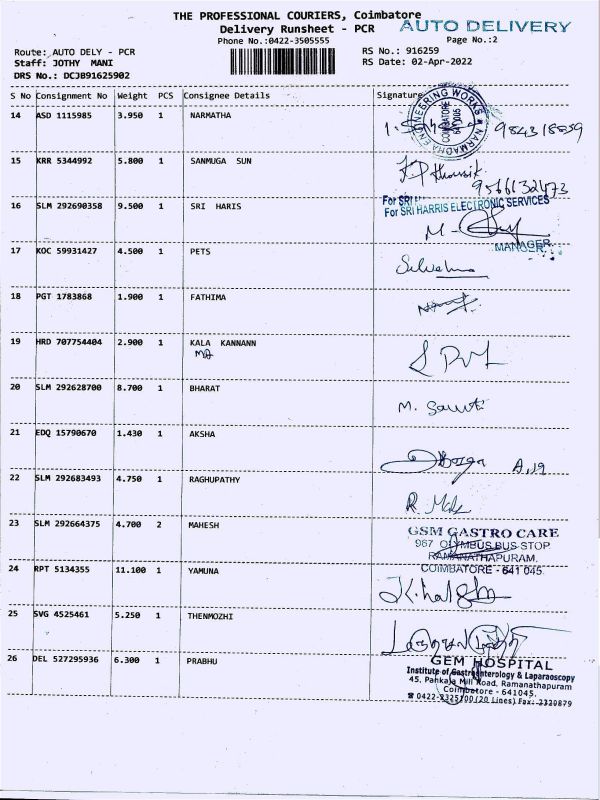 THE PROFESSIONAL COURIERS, Coimbatore
Delivery Runsheet - PCR
AUTO DELIVERY
Phone No.:0422-3505555
Page No.:2
Route: AUTO DELY - PCR
RS No.: 916259
Staff: JOTHY MANI
RS Date: 02-Apr-2022
DRS No.: DCJB91625902
S No Consignment No Weight PCS Consignee Details Signature
14 ASD 1115985 3.950 1 NARMATHA
ENGINEERING WORKS NARMADHA COIMBATORE
984318859
15 KRR 5344992 5.800 1 SANMUGA SUN
9566132473
16 SLM 292690358 9.500 1 SRI HARIS
For SRI
For SRI HARRIS ELECTRONIC SERVICES
MANAGER.
17 KOC 59931427 4.500 1 PETS
18 PGT 1783868 1.900 1 FATHIMA
19 HRD 707754404 2.900 1 KALA KANNANN
20 SLM 292628700 8.700 1 BHARAT
21 EDQ 15790670 1.430 1 AKSHA
22 SLM 292683493 4.750 1 RAGHUPATHY
23 SLM 292664375 4.700 2 MAHESH
GSM GASTRO CARE
987 OLYMBUS BUS STOP
RAMANATHAPURAM.
COIMBATORE - 641 045.
24 RPT 5134355 11.100 1 YAMUNA
25 SVG 4525461 5.250 1 THENMOZHI
26 DEL 527295936 6.300 1 PRABHU
GEM HOSPITAL
Institute of Gastroenterology & Laparaoscopy
45, Pankaja Mill Road, Ramanathapuram
Coimbatore - 641045.
☎ 0422-2325100 (20 Lines) Fax: 2320879